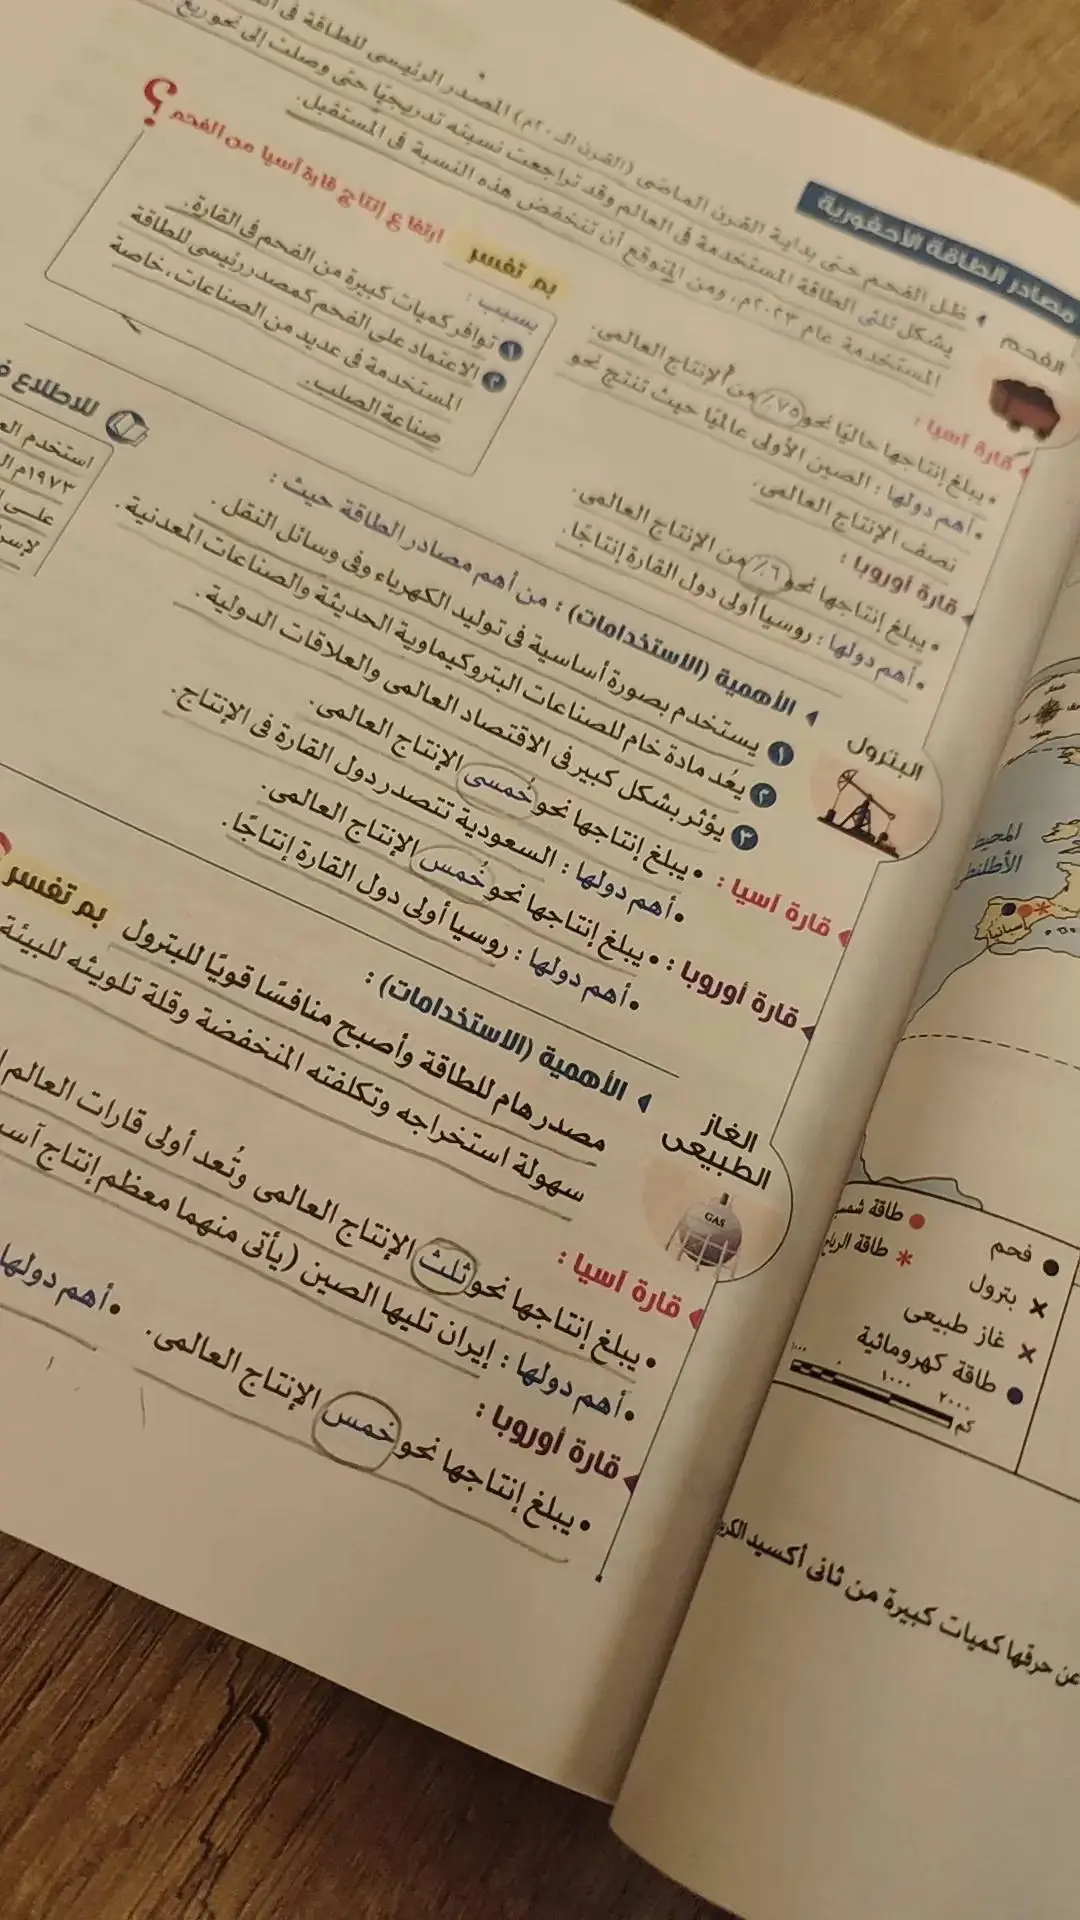 مصادر الطاقة الأحفورية
الفحم
ظل الفحم حتى بداية القرن الماضى (القرن الـ ٢٠م) المصدر الرئيسى للطاقة فى
يشكل ثلثى الطاقة المستخدمة فى العالم وقد تراجعت نسبته تدريجيًا حتى وصلت إلى نحو ربع
المستخدمة عام ٢٠٢٣م، ومن المتوقع أن تنخفض هذه النسبة فى المستقبل.
قارة آسيا :
• يبلغ إنتاجها حاليًا نحو ٧٥٪ من الإنتاج العالمى.
• أهم دولها : الصين الأولى عالميًا حيث تنتج نحو
نصف الإنتاج العالمى.
قارة أوروبا :
• يبلغ إنتاجها نحو ٦٪ من الإنتاج العالمى.
• أهم دولها : روسيا أولى دول القارة إنتاجًا.
بم تفسر ارتفاع إنتاج قارة آسيا من الفحم ؟
بسبب :
١ توافر كميات كبيرة من الفحم فى القارة.
٢ الاعتماد على الفحم كمصدر رئيسى للطاقة
المستخدمة فى عديد من الصناعات، خاصة
صناعة الصلب.
للاطلاع
استخدم
١٩٧٣م
البترول
الأهمية (الاستخدامات) : من أهم مصادر الطاقة حيث :
١ يستخدم بصورة أساسية فى توليد الكهرباء وفى وسائل النقل.
٢ يُعد مادة خام للصناعات البتروكيماوية الحديثة والصناعات المعدنية.
٣ يؤثر بشكل كبير فى الاقتصاد العالمى والعلاقات الدولية.
قارة آسيا : • يبلغ إنتاجها نحو خُمسى الإنتاج العالمى.
• أهم دولها : السعودية تتصدر دول القارة فى الإنتاج.
قارة أوروبا : • يبلغ إنتاجها نحو خُمس الإنتاج العالمى.
• أهم دولها : روسيا أولى دول القارة إنتاجًا.
الغاز
الطبيعى
GAS
الأهمية (الاستخدامات) :
مصدر هام للطاقة وأصبح منافسًا قويًا للبترول بم تفسر
سهولة استخراجه وتكلفته المنخفضة وقلة تلويثه للبيئة
قارة آسيا :
• يبلغ إنتاجها نحو ثلث الإنتاج العالمى وتُعد أولى قارات العالم
• أهم دولها : إيران تليها الصين (يأتى منهما معظم إنتاج
قارة أوروبا :
• يبلغ إنتاجها نحو خمس الإنتاج العالمى.
• أهم دولها
المحيط
الأطلنطى
أسبانيا
فحم
بترول
غاز طبيعى
طاقة كهرومائية
طاقة
طاقة
١٠٠٠ ٢٠٠٠
كم
عن حرقها كميات كبيرة من ثانى أكسيد